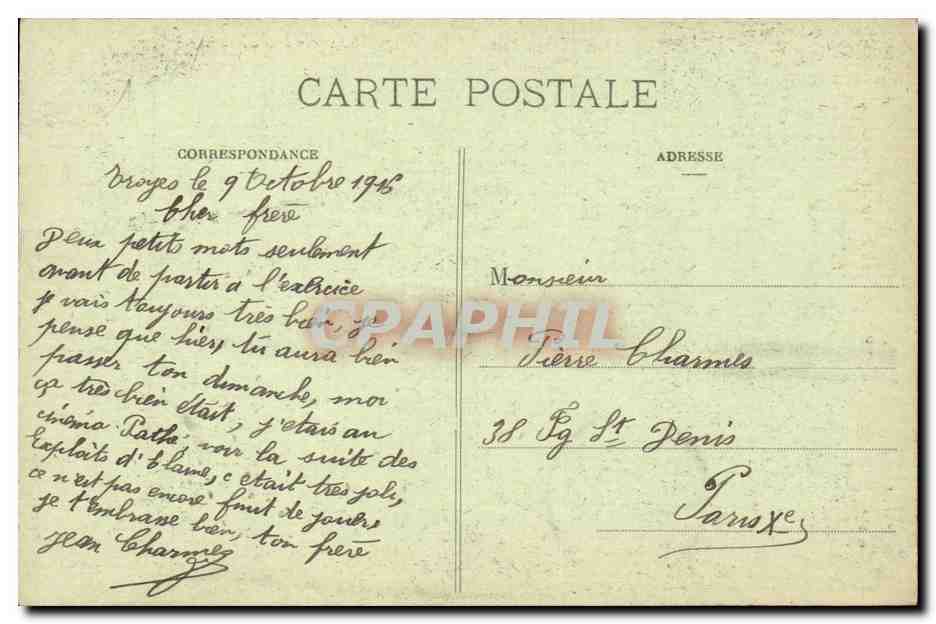 CARTE POSTALE
CORRESPONDANCE
ADRESSE
Troyes le 9 Octobre 1916
Cher frère
Deux petits mots seulement
avant de partir à l'exercice
je vais toujours très bien, je
pense que hier, tu aura bien
passer ton dimanche, moi
ça très bien était, j'etais au
cinéma Pathé, voir la suite des
Exploits d'Elaine, c etait très joli,
ce n'est pas encore finit de jouer,
je t'embrasse bien, ton frère
Jean Charmes
Monsieur
Pierre Charmes
38 Fg St Denis
Paris Xe
CPAPHIL